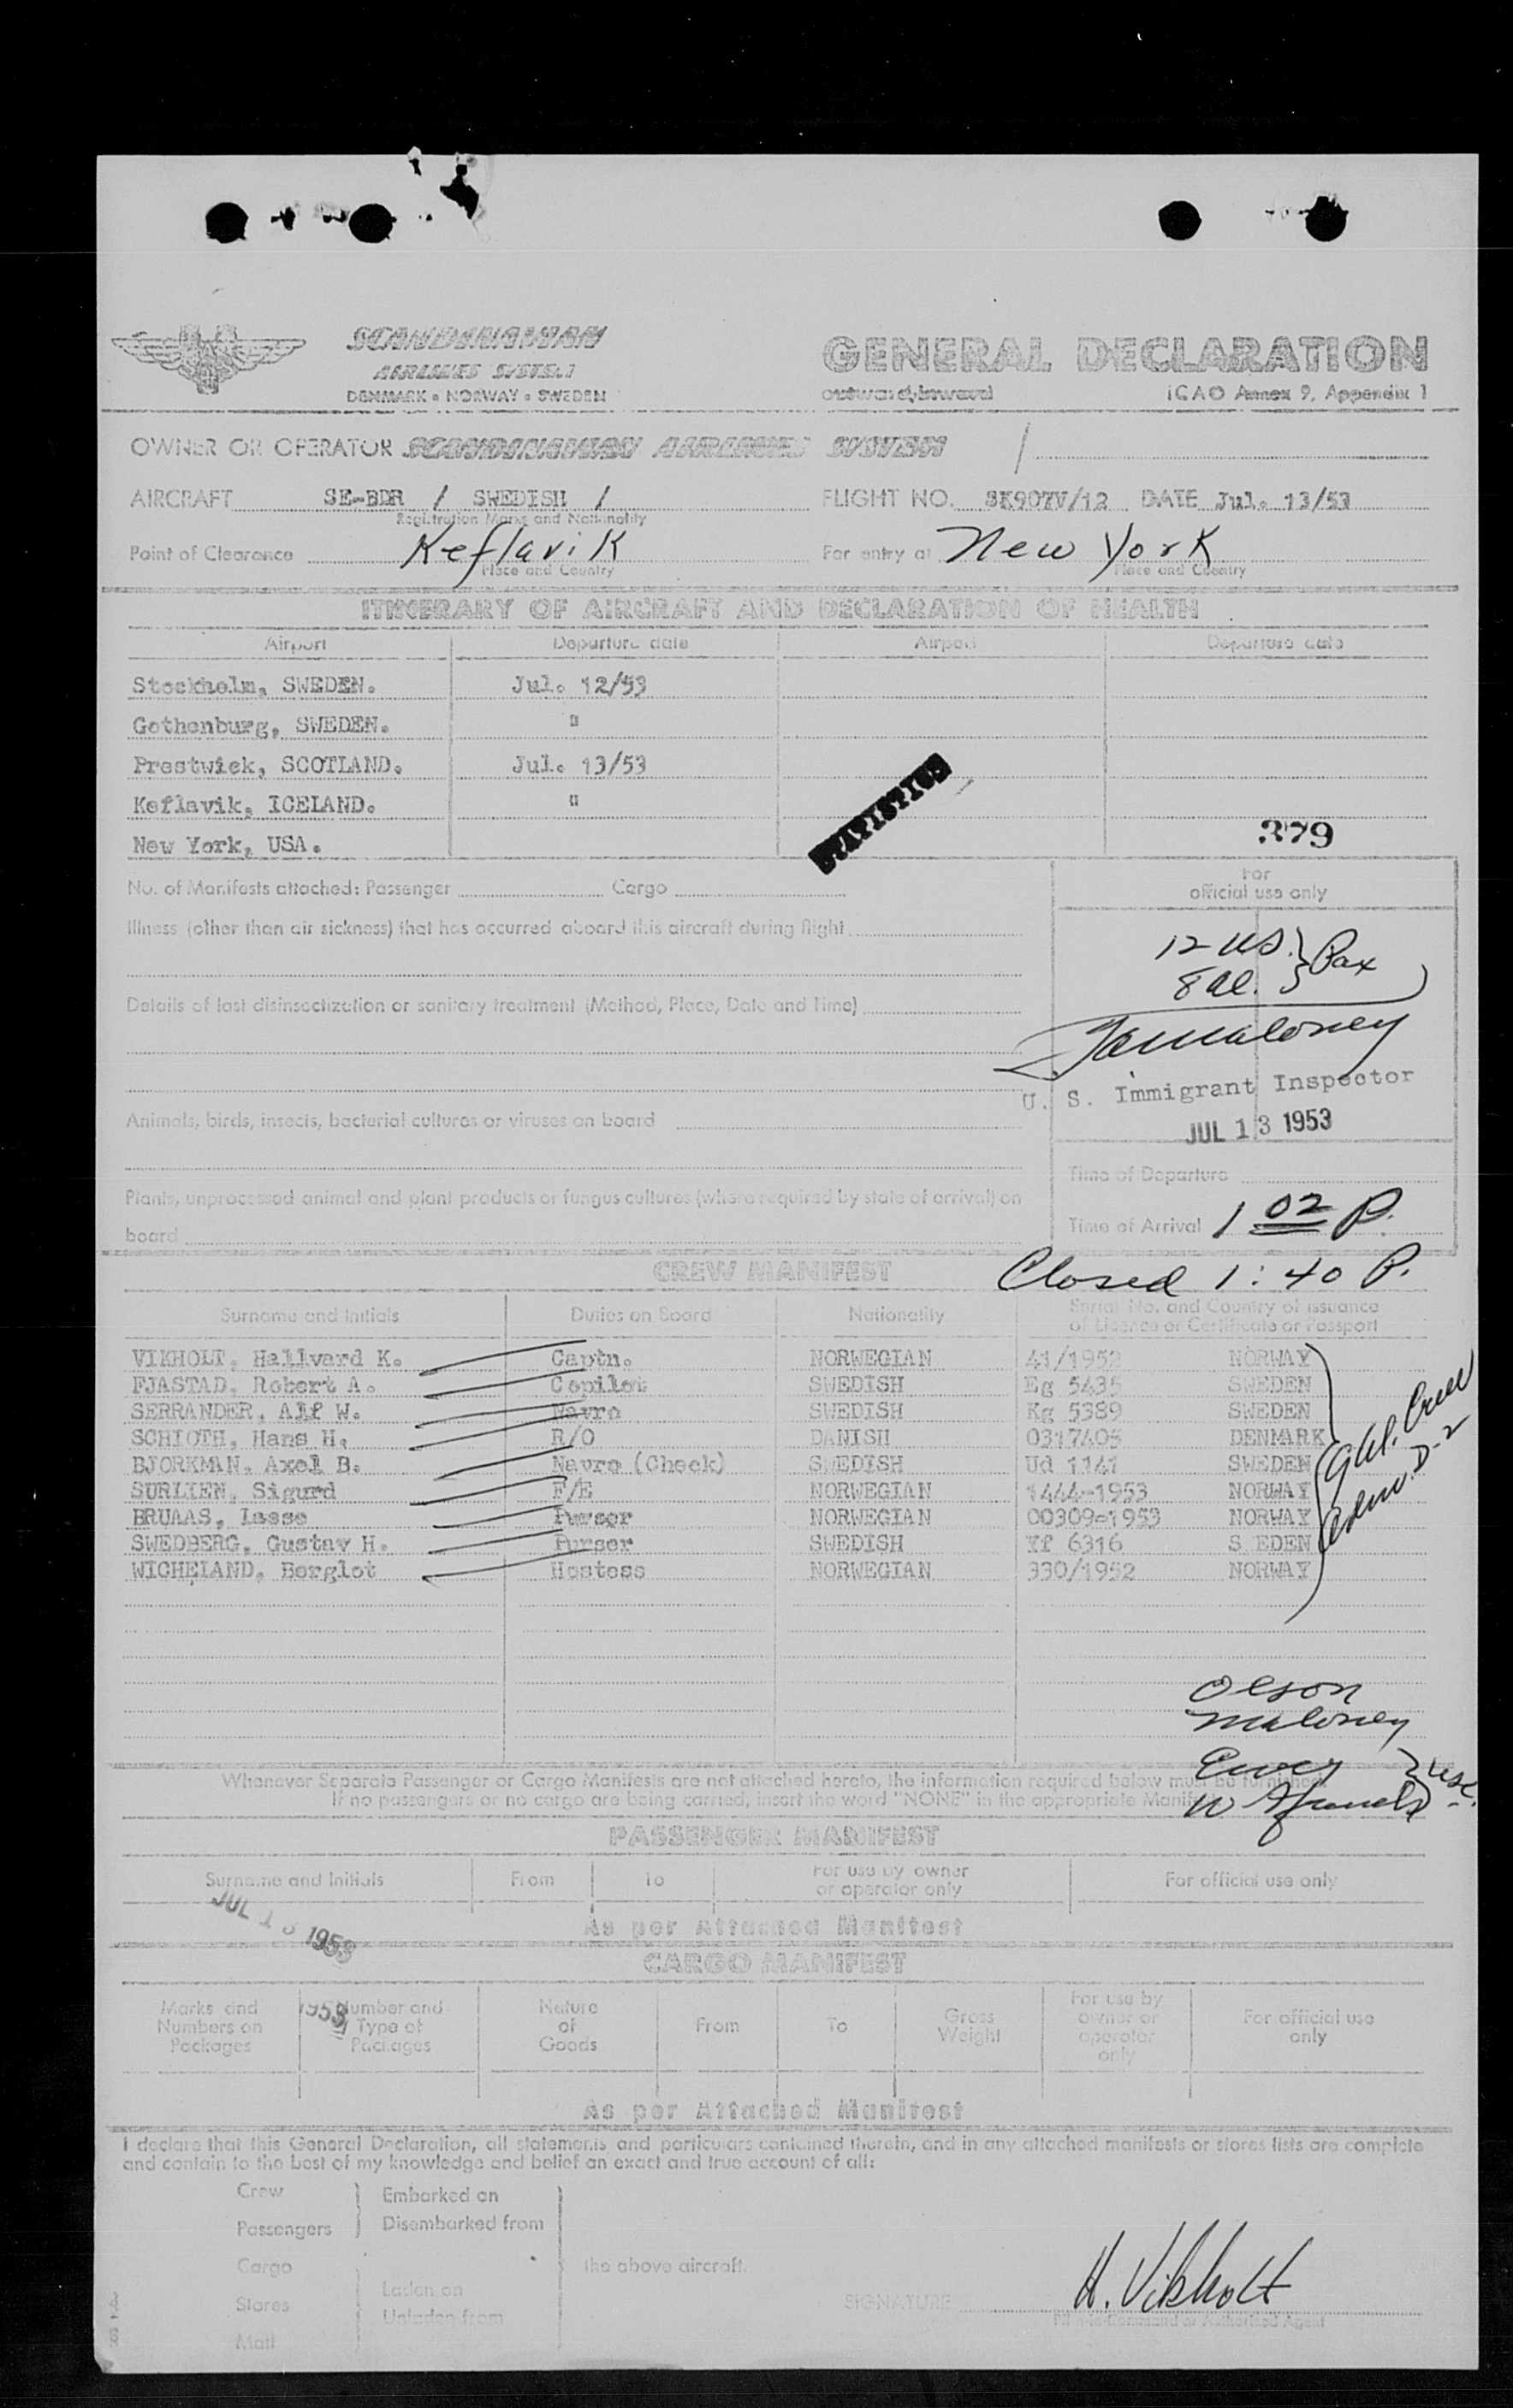 SCANDINAVIAN
AIRLINES SYSTEM
DENMARK • NORWAY • SWEDEN
GENERAL DECLARATION
outward/inward
ICAO Annex 9, Appendix 1
OWNER OR OPERATOR SCANDINAVIAN AIRLINES SYSTEM /
AIRCRAFT SE-BDR / SWEDISH / FLIGHT NO. SK907V/12 DATE Jul. 13/53
Registration Marks and Nationality
Point of Clearance Keflavik For entry at New York
Place and Country Place and Country
ITINERARY OF AIRCRAFT AND DECLARATION OF HEALTH
Airport Departure date Airport Departure date
Stockholm, SWEDEN. Jul. 12/53
Gothenburg, SWEDEN. "
Prestwick, SCOTLAND. Jul. 13/53
Keflavik, ICELAND. "
New York, USA.
STATISTICS
379
No. of Manifests attached: Passenger Cargo
For
official use only
Illness (other than air sickness) that has occurred aboard this aircraft during flight
12 US. } Pax
8 al.
Details of last disinsectization or sanitary treatment (Method, Place, Date and Time)
Maloney
U. S. Immigrant Inspector
JUL 13 1953
Animals, birds, insects, bacterial cultures or viruses on board
Time of Departure
Plants, unprocessed animal and plant products or fungus cultures (where required by state of arrival) on
board
Time of Arrival 1 02 P.
Closed 1:40 P.
CREW MANIFEST
Surname and Initials Duties on Board Nationality Serial No. and Country of issuance
of Licence or Certificate or Passport
VIKHOLT, Hallvard K. Captn. NORWEGIAN 41/1952 NORWAY
FJASTAD, Robert A. Copilot SWEDISH Eg 5435 SWEDEN
SERRANDER, Alf W. Navro SWEDISH Kg 5389 SWEDEN
SCHIOTH, Hans H. R/O DANISH 0317405 DENMARK
BJORKMAN, Axel B. Navro (Check) SWEDISH Ud 1141 SWEDEN
SURLIEN, Sigurd F/E NORWEGIAN 1444-1953 NORWAY
BRUAAS, Lasse Purser NORWEGIAN 00309-1953 NORWAY
SWEDBERG, Gustav H. Purser SWEDISH 6316 S EDEN
WICHELAND, Borglot Hostess NORWEGIAN 330/1952 NORWAY
Crew
Adm. D-2
Olson
Maloney
Whenever Separate Passenger or Cargo Manifests are not attached hereto, the information required below must be furnished.
If no passengers or no cargo are being carried, insert the word "NONE" in the appropriate
PASSENGER MANIFEST
Surname and Initials From To For use by owner
or operator only
For official use only
JUL 13 1953
As per Attached Manifest
CARGO MANIFEST
Marks and
Numbers on
Packages
1953
Number and
Type of
Packages
Nature
of
Goods
From To Gross
Weight
For use by
owner or
operator
only
For official use
only
As per Attached Manifest
I declare that this General Declaration, all statements and particulars contained therein, and in any attached manifests or stores lists are complete
and contain to the best of my knowledge and belief an exact and true account of all:
Crew
Passengers
Embarked on
Disembarked from
Cargo
Stores
Mail
Laden on
Unladen from
the above aircraft.
SIGNATURE H. Vikholt
Pilot-in-Command or Authorised Agent